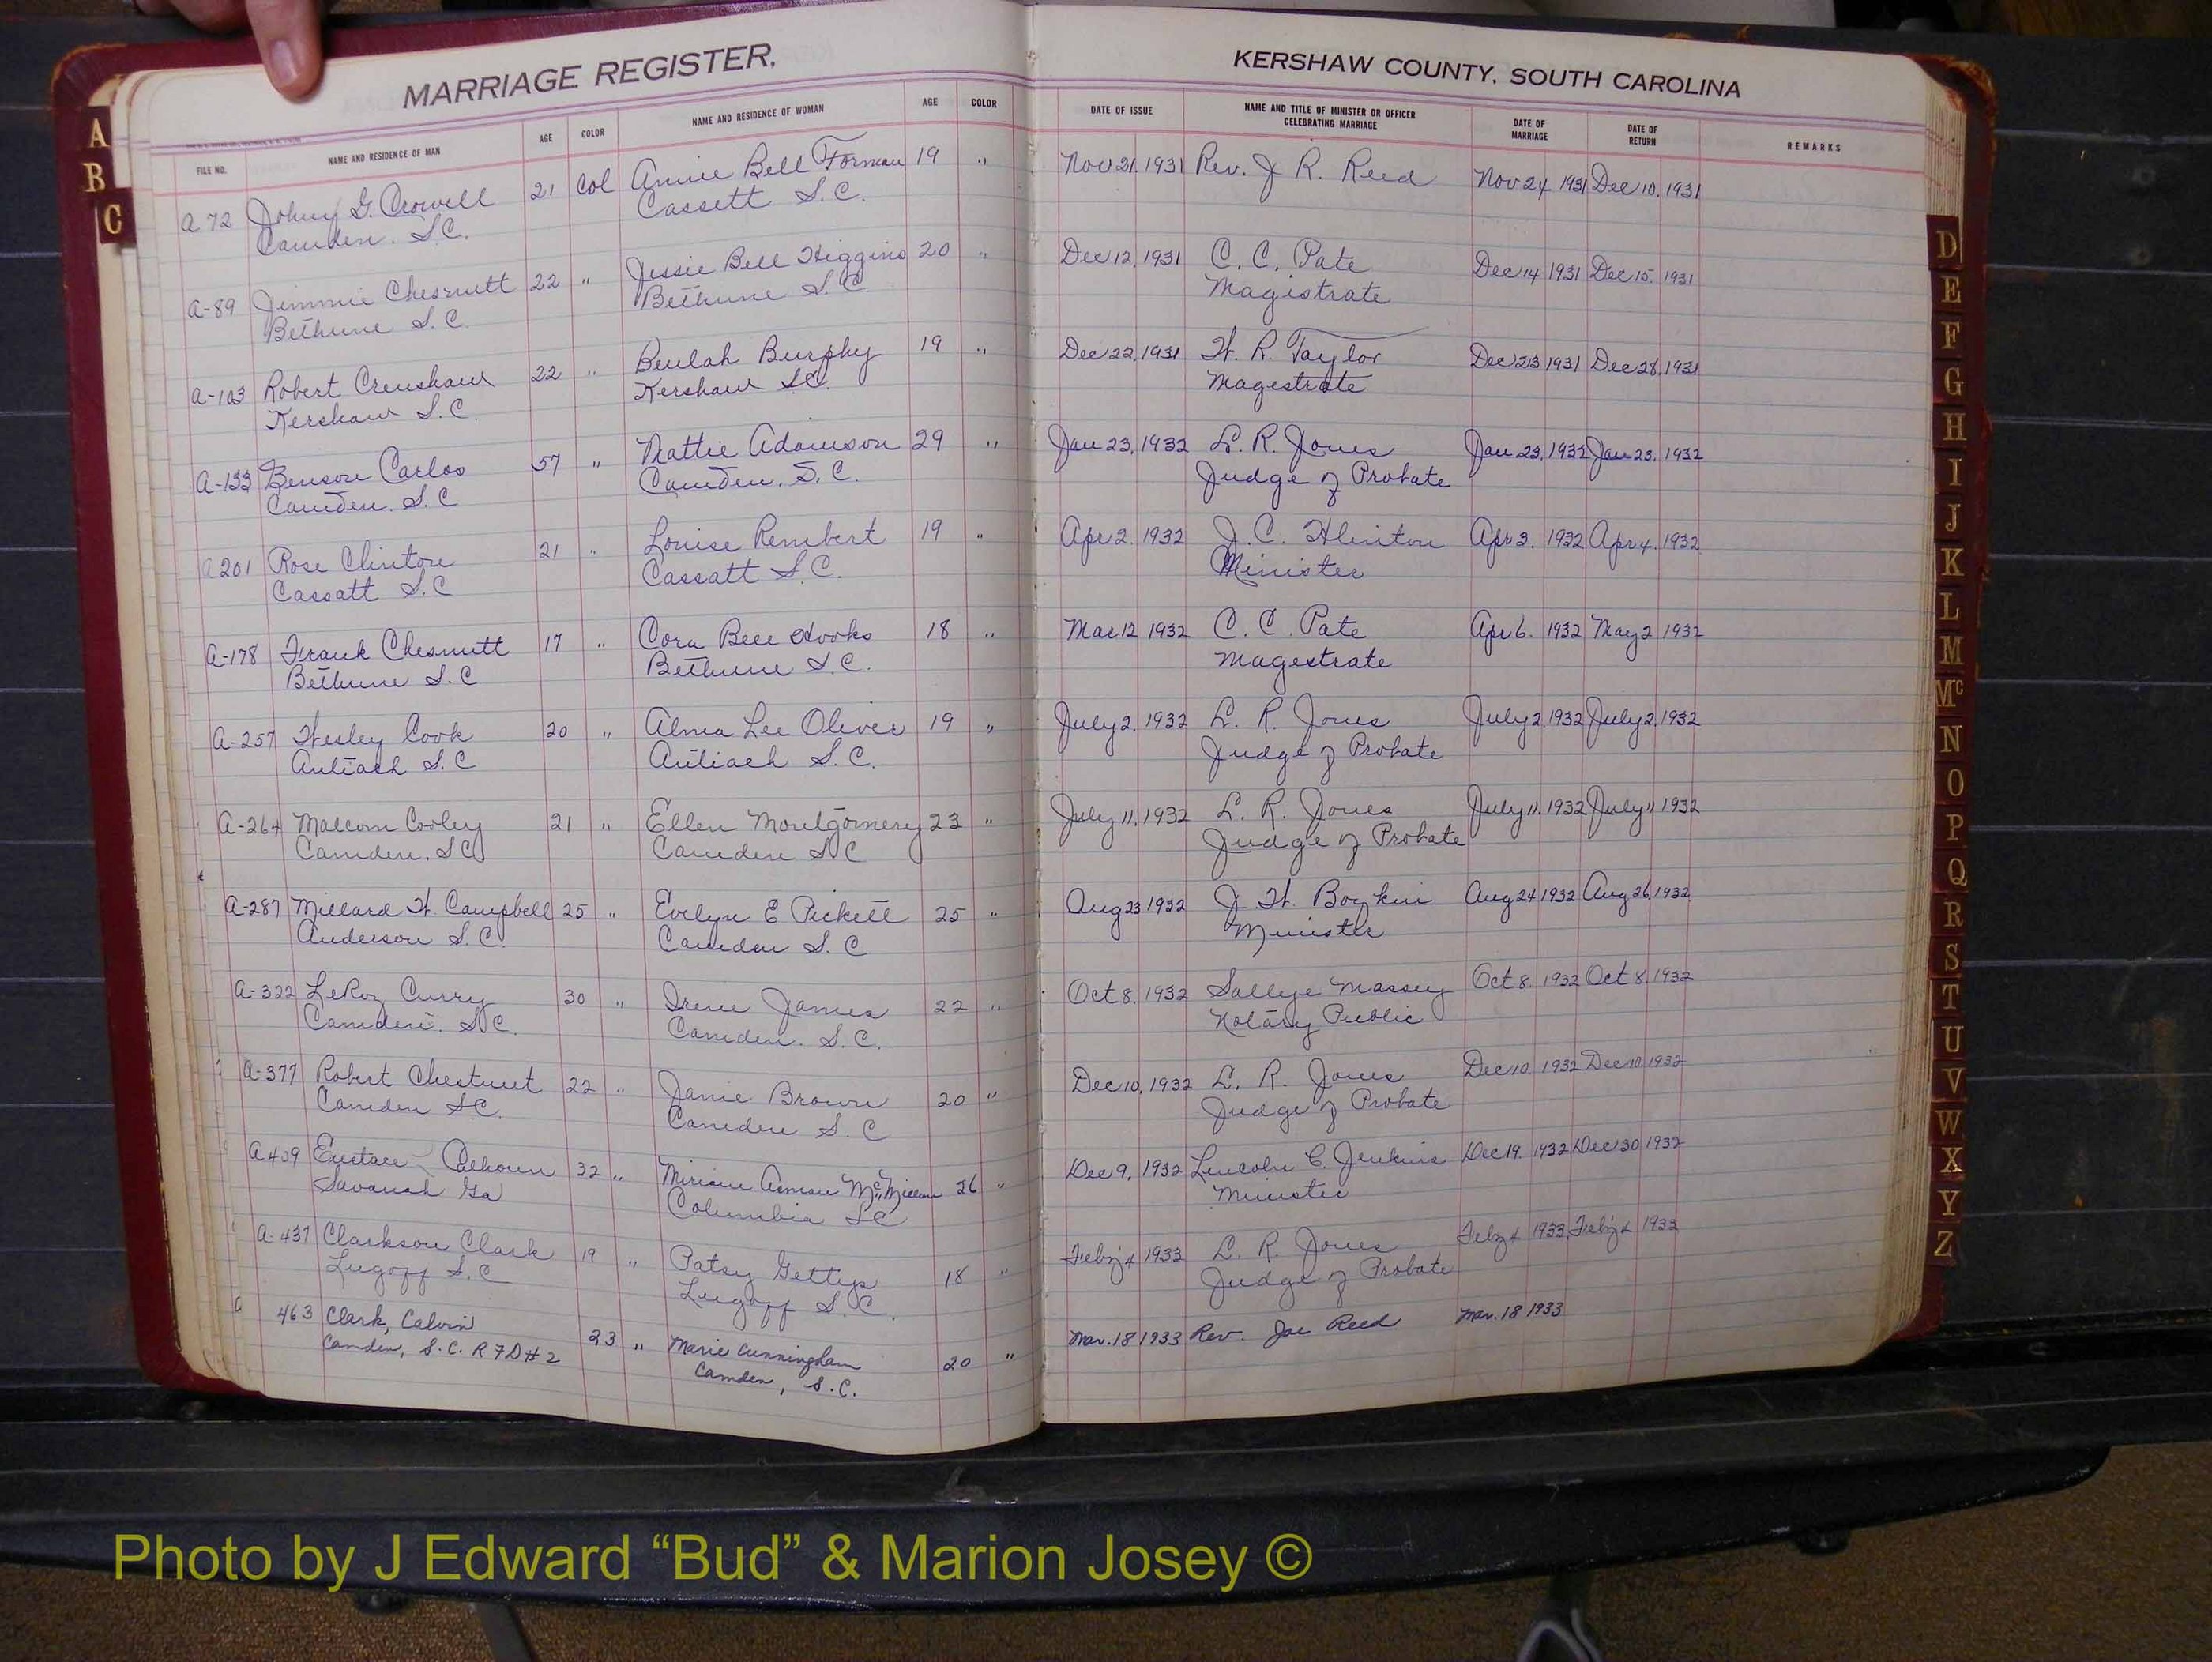 MARRIAGE REGISTER.
KERSHAW COUNTY, SOUTH CAROLINA
FILE NO. NAME AND RESIDENCE OF MAN AGE COLOR NAME AND RESIDENCE OF WOMAN AGE COLOR DATE OF ISSUE NAME AND TITLE OF MINISTER OR OFFICER CELEBRATING MARRIAGE DATE OF MARRIAGE DATE OF RETURN REMARKS
A 72 Johny G. Crowell 21 Col Annie Bell Forman 19 " Nov 21, 1931 Rev. J. R. Reed Nov 24 1931 Dec 10, 1931
Camden. S.C. Cassett S.C.
A-89 Jimmie Chesnutt 22 " Jessie Bell Higgins 20 " Dec 12, 1931 C. C. Pate Dec 14 1931 Dec 15, 1931
Bethune S.C. Bethune S.C. Magistrate
A-103 Robert Crenshaw 22 " Beulah Burphy 19 " Dec 22, 1931 W. R. Taylor Dec 23 1931 Dec 28, 1931
Kershaw S.C. Kershaw S.C. Magestrate
A-133 Benson Carlos 57 " Mattie Adamson 29 " Jan 23, 1932 L. R. Jones Jan 23, 1932 Jan 23, 1932
Camden. S.C Camden. S.C. Judge of Probate
A 201 Rose Clinton 21 " Louise Rembert 19 " Apr 2. 1932 J. C. Hinton Apr 3. 1932 Apr 4. 1932
Cassatt S.C Cassatt S.C. Minister
A-178 Frank Chesnutt 17 " Cora Bell Hooks 18 " Mar 12 1932 C. C. Pate Apr 6. 1932 May 2 1932
Bethune S.C Bethune S.C. Magestrate
A-257 Wesley Cook 20 " Alma Lee Oliver 19 " July 2, 1932 L. R. Jones July 2, 1932 July 2, 1932
Antioch S.C Antioch S.C. Judge of Probate
A-264 Malcom Corley 21 " Ellen Montgomery 23 " July 11, 1932 L. R. Jones July 11, 1932 July 11 1932
Camden. S.C Camden S.C Judge of Probate
A-287 Millard W. Campbell 25 " Evelyn E Pickett 25 " Aug 23 1932 J. W. Boykin Aug 24 1932 Aug 26, 1932
Anderson S.C. Camden S.C Minister
A-322 LeRoy Curry 30 " Irene James 22 " Oct 8, 1932 Sallye Massey Oct 8, 1932 Oct 8, 1932
Camden. S.C. Camden. S.C. Notary Public
A-377 Robert Chestnut 22 " Janie Brown 20 " Dec 10, 1932 L. R. Jones Dec 10, 1932 Dec 10, 1932
Camden S.C. Camden S.C Judge of Probate
A 409 Eustace Calhoun 32 " Miriam McMillan 26 " Dec 9, 1932 Lincoln C. Jenkins Dec 19. 1932 Dec 30 1932
Savanah Ga Columbia S.C Minister
A-437 Clarkson Clark 19 " Patsy Gettys 18 " Feby 4 1933 L. R. Jones Feby 4 1933 Feby 4 1933
Lugoff S.C Lugoff S.C. Judge of Probate
A 463 Clark, Calvin 23 " Marie Cunningham 20 " Mar. 18 1933 Rev. Joe Reed Mar. 18 1933
Camden, S.C. R7D#2 Camden, S.C.
A
B
C
D
E
F
G
H
I
J
K
L
M
Mc
N
O
P
Q
R
S
T
U
V
W
X
Y
Z
Photo by J Edward “Bud” & Marion Josey ©